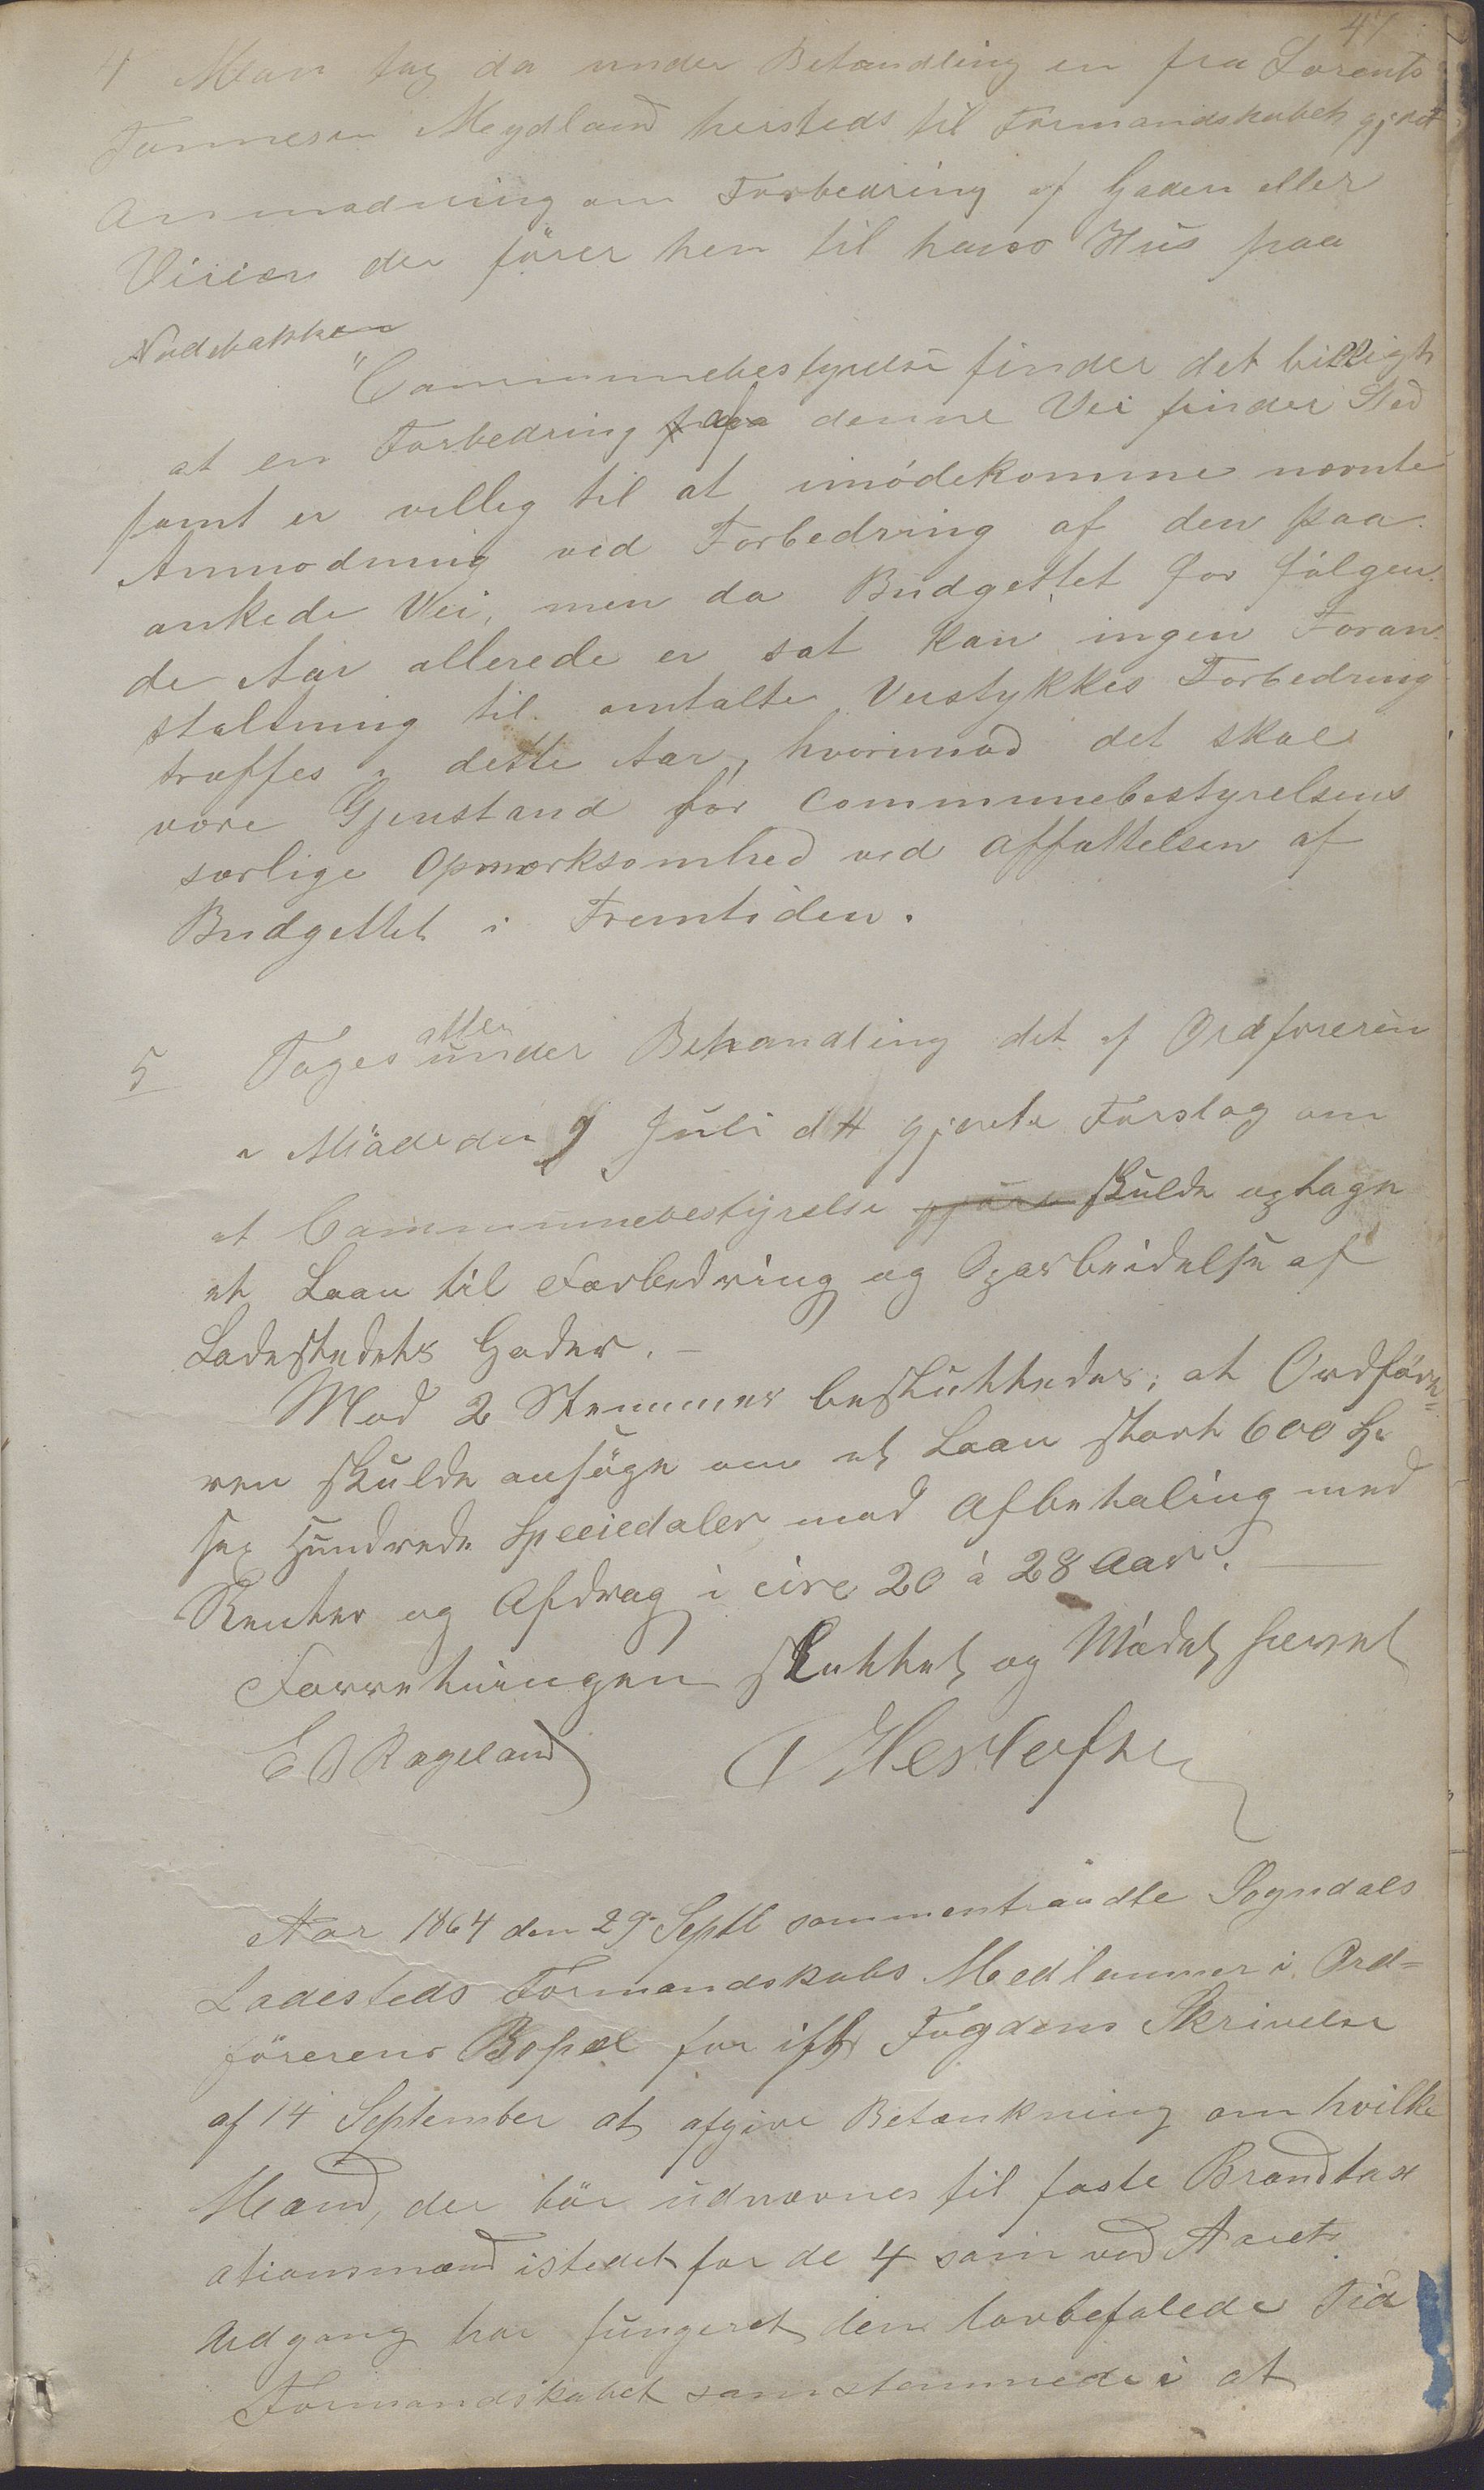 47
4 Man tog da under Behandling en fra Lorents
Tonnesen Meydland hersteds til Formandskabet gjort
Anmodning om Forbedring af Gaden eller
Veien der fører hen til hans Hus paa
Nodebakken
"Communebestyrelse finder det billigt
at en Forbedring af denne Vei finder Sted
samt er villig til at imødekomme nævnte
Anmodning ved Forbedring af den paa
ankede Vei, men da Budgettet for følgen
de Aar allerede er sat kan ingen Foran
staltning til omtalte Veistykkes Forbedring
træffes i dette Aar, hvorimod det skal
være Gjenstand for Communebestyrelsens
særlige Opmærksomhed ved Affattelsen af
Budgettet i Fremtiden.
5 Toges atter under Behandling det af Ordføreren
i Møde den 9 Juli d A gjorte Forslag om
at Communebestyrelse skulde optage
et Laan til Forbedring og Oparbeidelse af
Ladestedets Gader. –
Mod 2 Stemmer besluttedes; at Ordføre=
ren skulde ansøge om et Laan stort 600 Sp
sex Hundrede Speciedaler mod Afbetaling med
Renter og Afdrag i circ 20 à 28 Aar. —
Forretningen sluttet og Mødet hævet
E O Rageland
Aar 1864 den 29 Septb sammentraadte Sogndals
Ladesteds Formandskabs Medlemmer i Ord=
førerens Bopæl for ifl Fogdens Skrivelse
af 14 September at afgive Betænkning om hvilke
Mænd, der bør udnævnes til faste Brandtax
ationsmænd istedet for de 4 som ved Aarets
Udgang har fungeret den lovbefalede Tid
Formandskabet samstemmede i at